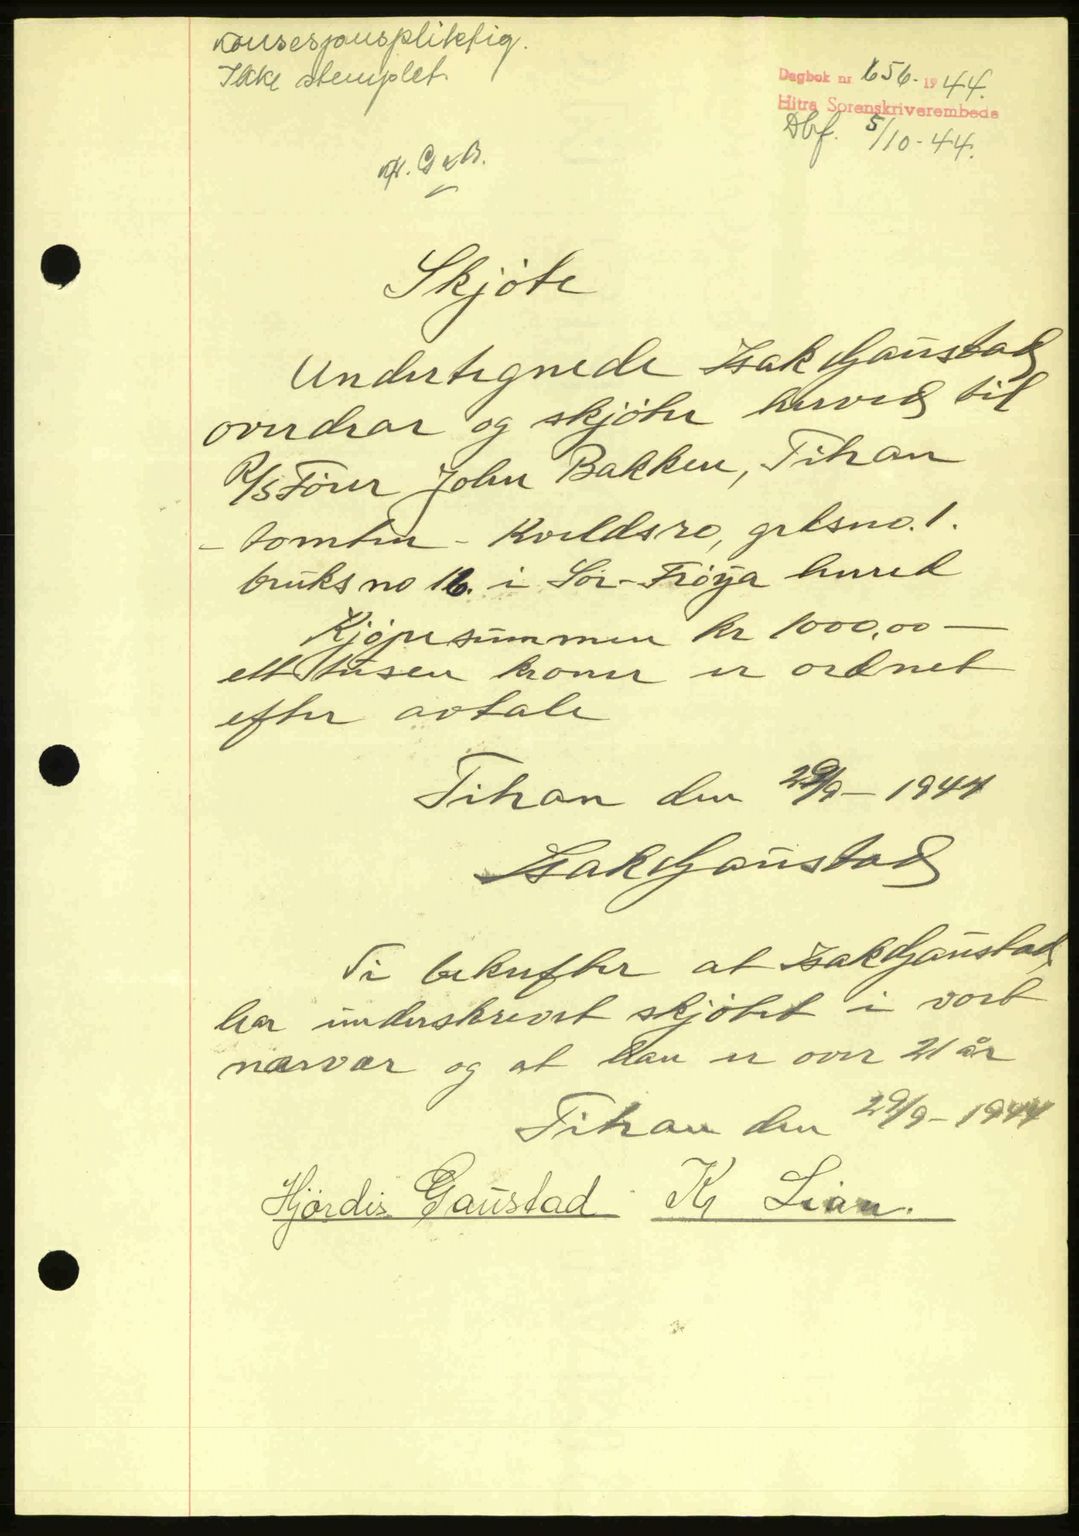 Konsesjonspliktig.
Ikke stemplet.
Dagbok nr 656. 1944.
Hitra Sorenskriverembede
Dbf. 5/10-44.
Skjöte
Undertegnede Isak Gaustad
overdrar og skjöter herved til
R/S Förer John Bakken, Titran
- tomten - Kveldsro, grbsno. 1.
bruksno 16. i Sör-Fröya herred
Kjöpesummen kr 1000,00 —
ett tusen kroner er ordnet
efter avtale
Titran den 29/9 - 1944
Isak Gaustad
Vi bekrefter at Isak Gaustad
har underskrevet skjötet i vort
nærvær og at han er over 21 år
Titran den 29/9 - 1944
Hjördis Gaustad Kr Lian.